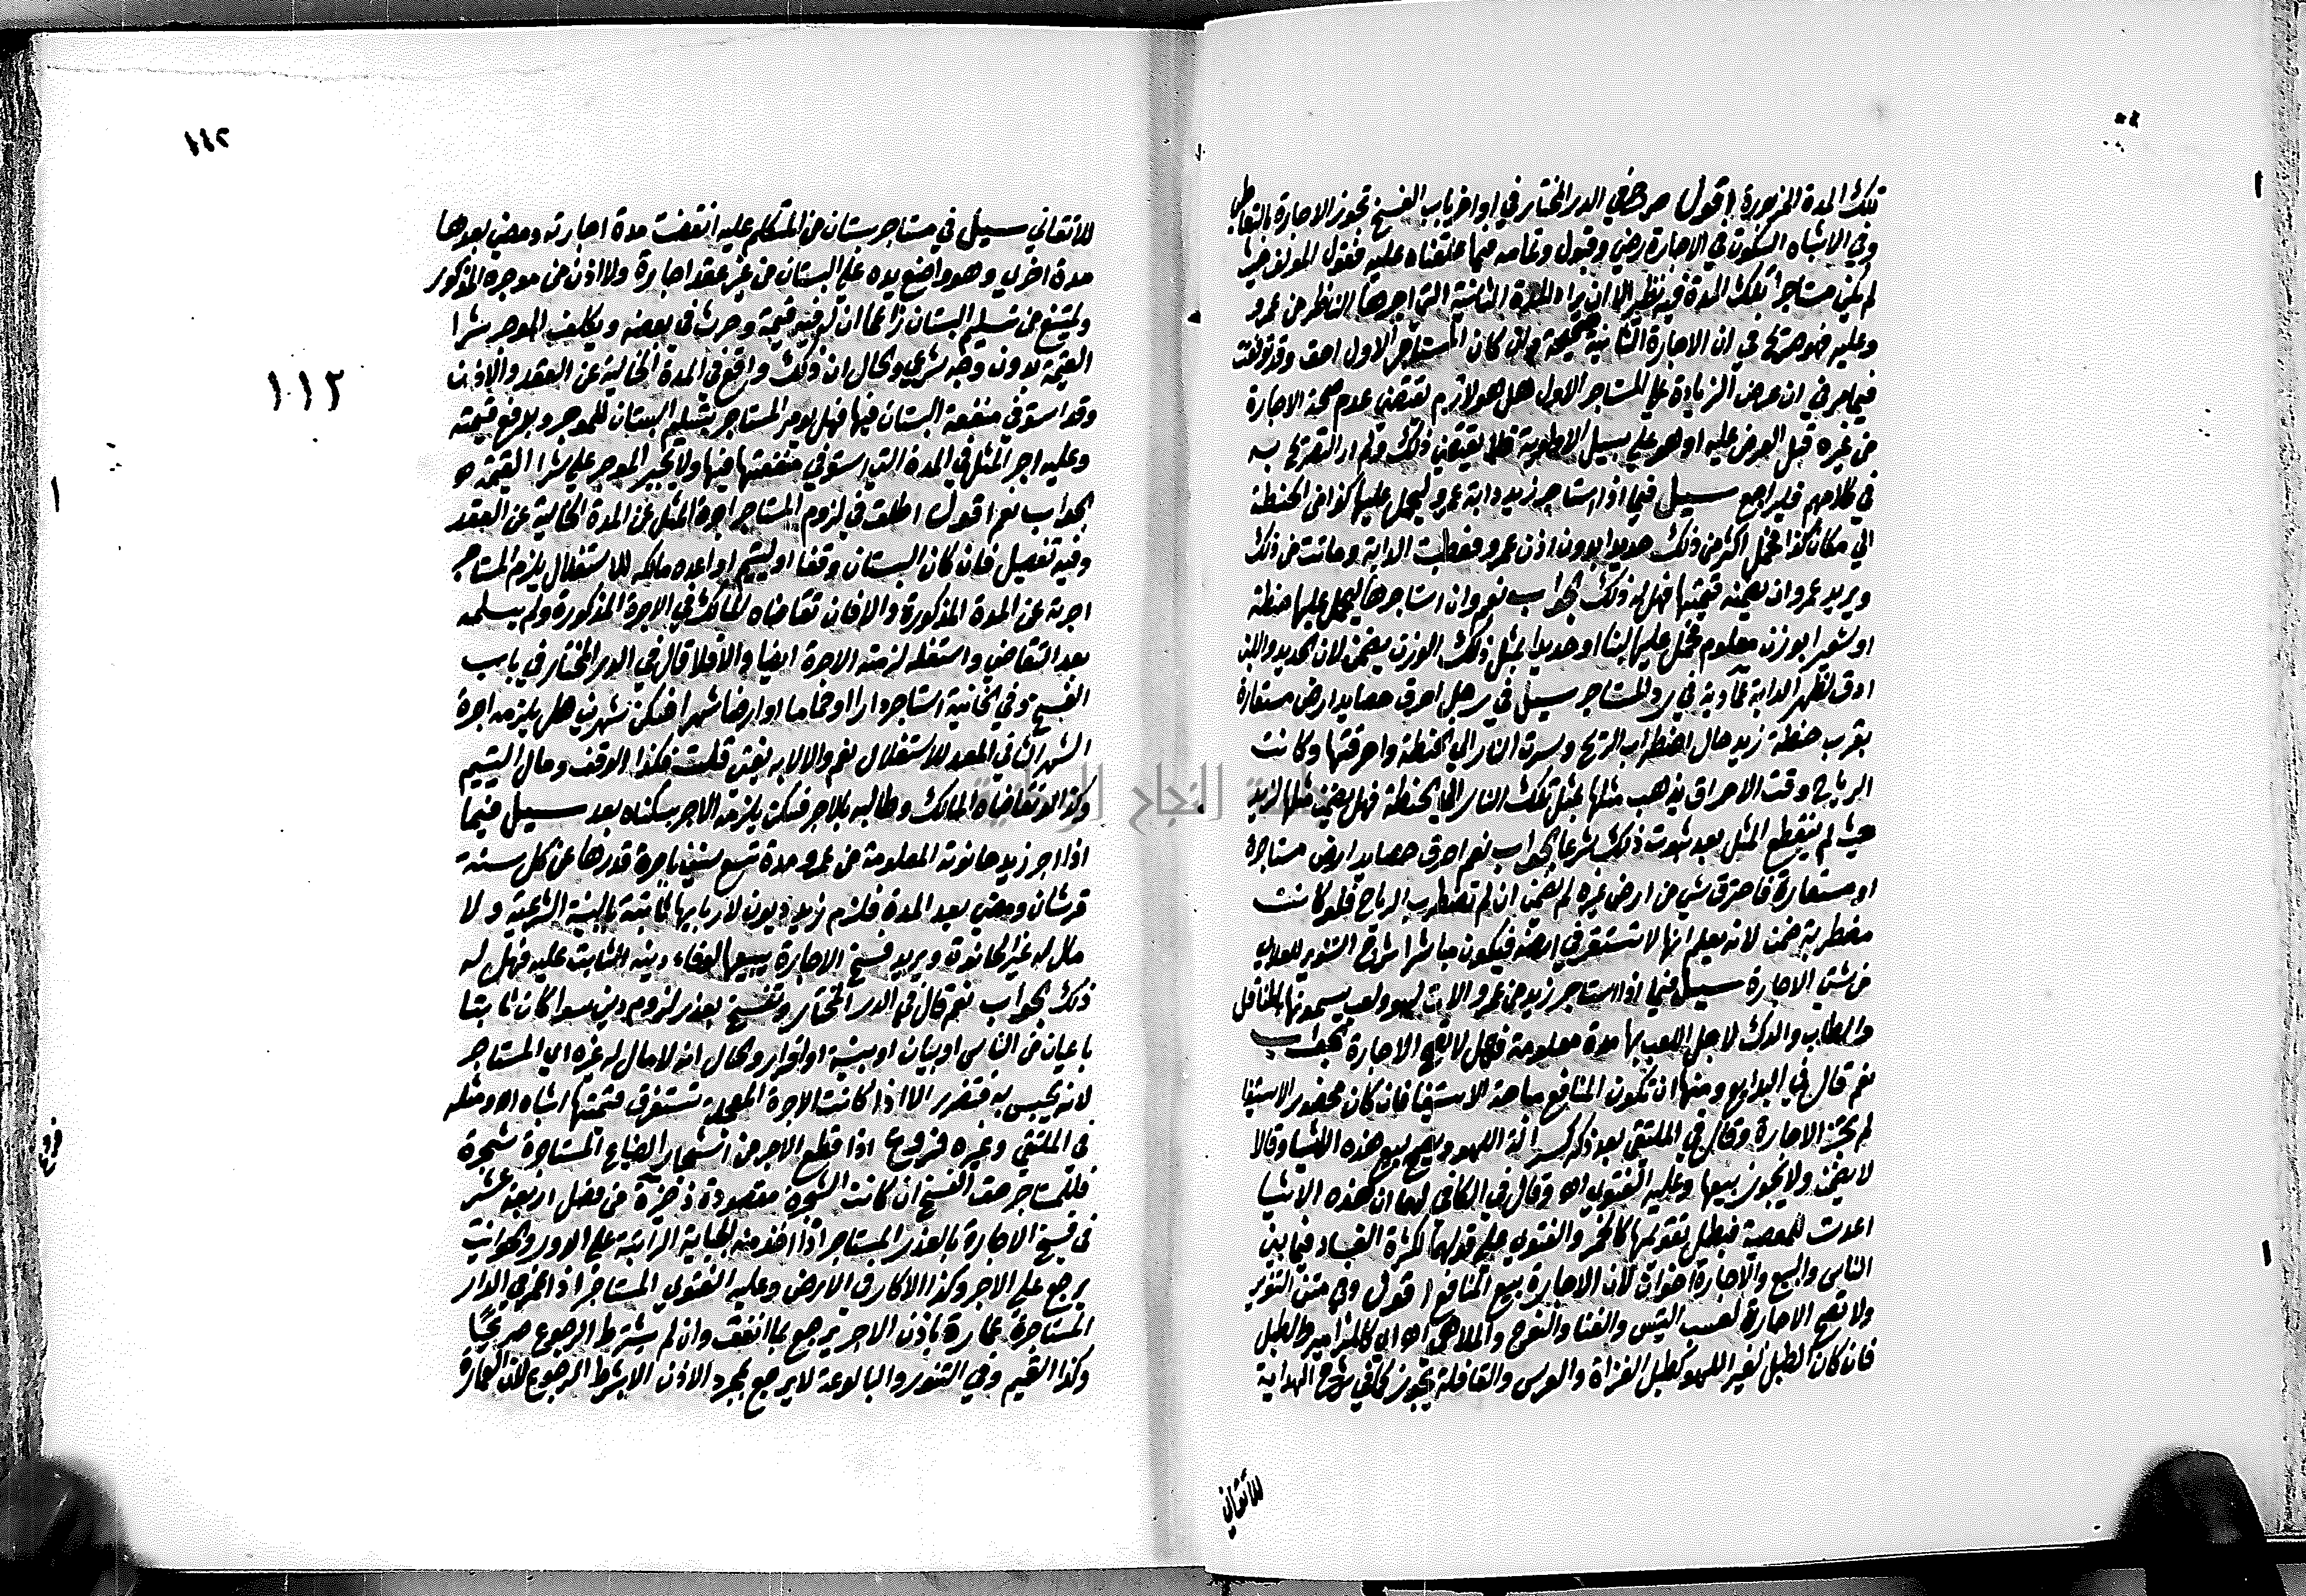 تلك المدة المزبورة اقول صرح في الدر المختار في اواخر باب الفسخ تجوز الاجارة بالتعاطي
وفي الاشباه السكوت في الاجارة رضي وقبول وتمامه فيما علقناه عليه فقول المؤلف حيث
لم يكن مستاجرا بتلك المدة فيه نظر الا ان يراد المدة الثانية التي اجرها الناظر من عمرو
وعليه فهو صريح في ان الاجارة الثانية صحيحة وان كان المستاجر الاول احق وقد توقفت
فيما مر في ان عرض الزيادة على المستاجر الاول هل هو لازم يقتضي عدم صحة الاجارة
من غيره قبل العرض عليه او هو على سبيل الاولوية فلا يقتضي ذلك ولم ار التصريح به
في كلامهم فليراجع سيل فيما اذا استاجر زيد دابة عمرو ليحمل عليها كذا من الحنطة
الى مكان كذا فحمل اكثر من ذلك حديدا بدون اذن عمرو فعطبت الدابة وماتت من ذلك
ويريد عمرو ان يضمنه قيمتها فهل له ذلك الجواب نعم وان استاجرها ليحمل عليها حنطة
او شعيرا بوزن معلوم فحمل عليها لبنا او حديدا بمثل ذلك الوزن يضمن لان الحديد واللبن
ادق لظهر الدابة عمادية في رد المستاجر سيل في رجل احرق حصايد ارض مستعارة
بقرب حنطة زيد حال اضطراب الريح وسرت النار الى الحنطة واحرقتها وكانت
الرياح وقت الاحراق يذهب مثلها بمثل تلك النار الى الحنطة فهل يضمن مثلها لزيد
حيث لم ينقطع المثل بعد ثبوت ذلك شرعا الجواب نعم احرق حصايد ارض مستاجرة
او مستعارة فاحترق شي من ارض غيره لم يضمن ان لم تضطرب الرياح فلو كانت
مضطربة ضمن لانه يعلم انها لا تستقر في ارضه فيكون مباشرا شرح التنوير للعلاي
من شتي الاجارة سيل فيما اذا استاجر زيد من عمرو الات لهو ولعب يسمونها المناقل
والطاب والدك لاجل اللعب بها مدة معلومة فهل لا تصح الاجارة الجواب
نعم قال في البدايع ومنها ان تكون المنافع مباحة الاستيفا فان كان محظور الاستيفا
لم تجز الاجارة وقال في الملتقي بعد ذكر كسر الة اللهو ويصح بيع هذه الاشيا وقالا
لا يضمن ولا يجوز بيعها وعليه الفتوي اه وقال في الكافي لهما ان هذه الاشيا
اعدت للمعصية فبطل تقومها كالخمر والفتوي علي قولهما لكثرة الفساد فيما بين
الناس والبيع والاجارة اخوان لان الاجارة بيع المنافع اقول وفي متن التنوير
ولا تصح الاجارة لعسب التيس والغنا والنوح والملاهي اه اي كالمزامير والطبل
فان كان الطبل لغير اللهو كطبل الغزاة والعرس والقافلة يجوز كما في شرح الهداية
للاتقاني
١١٢
١١٢
للاتقاني سيل في مستاجر بستان من المتكلم عليه انقضت مدة اجارته ومضي بعدها
مدة اخري وهو واضع يده على البستان من غير عقد اجارة ولا اذن من موجره المذكور
ويمتنع من تسليم البستان زاعما ان له فيه قيمة وحرث في بعضه ويكلف الموجر شرا
القيمة بدون وجه شرعي والحال ان ذلك واقع في المدة الخالية عن العقد والاذن
وقد استوفي منفعة البستان فيها فهل يومر المستاجر بتسليم البستان للموجر وبرفع قيمته
وعليه اجر المثل في المدة التي استوفي منفعتها فيها ولا يجبر الموجر علي شرا القيمة
الجواب نعم اقول اطلق في لزوم المستاجر اجرة المثل عن المدة الخالية عن العقد
وفيه تفصيل فان كان البستان وقفا او ليتيم او اعده مالكه للاستغلال يلزم المستاجر
اجرته عن المدة المذكورة والا فان تقاضاه المالك في الاجرة المذكورة ولم يسلمه
بعد التقاضي واستغله لزمته الاجرة ايضا والا فلا قال في الدر المختار في باب
الفسخ وفي الخانية استاجر دارا او حماما او ارضا شهرا فسكن شهرين هل يلزمه اجرة
الشهر الثاني المعد للاستغلال نعم والا لا به يفتى قلت فكذا الوقف ومال اليتيم
وكذا لو تقاضاه المالك وطالبه بالاجر فسكن يلزمه الاجر بسكناه بعد سيل فيما
اذا اجر زيد حانوته المعلومة من عمرو مدة تسع سنين باجرة قدرها عن كل سنة
قرشان ومضي بعد المدة فلزم زيد ديون لاربابها ثابتة بالبينة الشرعية ولا
مال له غير الحانوت ويريد فسخ الاجارة يبيعها لوفاء دينه الثابت عليه فهل له
ذلك الجواب نعم قال في الدر المختار وتفسخ بعذر لزوم دين سوا كان ثابتا
باعيان من الناس او بيان او بينة او اقرار والحال انه لا مال له غيره اي المستاجر
لانه يحبس به فتضرر الا اذا كانت الاجرة المعجلة تستغرق قيمتها اشباه اه ومثله
في الملتقي وغيره فروع اذا قطع الاجر من اشجار الضياع المستاجرة شجرة
فللمستاجر حق الفسخ ان كانت الشجرة مقصودة ذخيرة من فصل اربعة عشر
في فسخ الاجارة بالعذر المستاجر اذا اخذ منه الجباية الراتبة علي الدور والحوانيت
يرجع علي الاجر وكذا الاكار في الارض وعليه الفتوي المستاجر اذا عمر في الدار
المستاجرة عمارة باذن الاجر يرجع بما انفق وان لم يشترط الرجوع صريحا
وكذا القيم وفي التنور والبالوعة لا يرجع بمجرد الاذن الا بشرط الرجوع لان العمارة